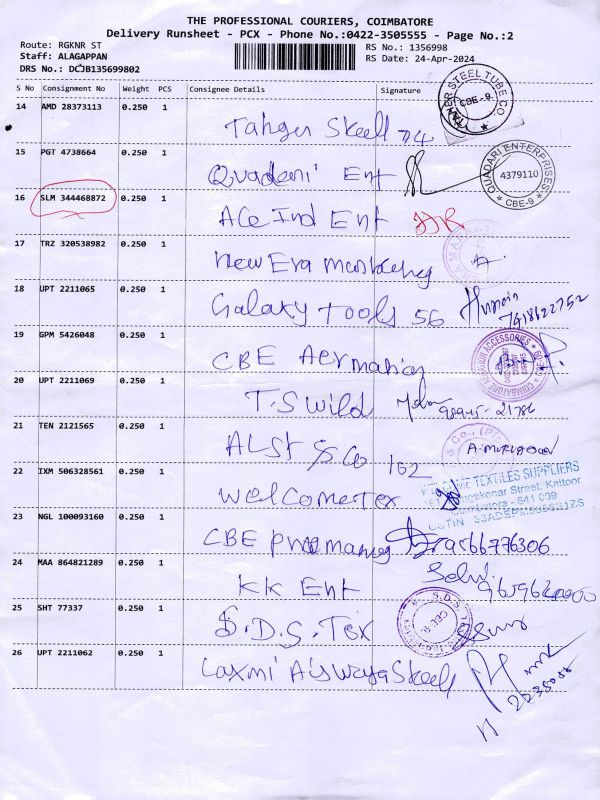 THE PROFESSIONAL COURIERS, COIMBATORE
Delivery Runsheet - PCX - Phone No.:0422-3505555 - Page No.:2
Route: RGKNR ST
Staff: ALAGAPPAN
DRS No.: DCJB135699802
RS No.: 1356998
RS Date: 24-Apr-2024
S No Consignment No Weight PCS Consignee Details Signature
14 AMD 28373113 0.250 1
Steel 74
STEEL TUBE CO
CBE - 9.
15 PGT 4738664 0.250 1
Quadari Ent
QUADARI ENTERPRISES
4379110
CBE-9
16 SLM 344468872 0.250 1
Ace Ind Ent
17 TRZ 320538982 0.250 1
New Era Marketing
18 UPT 2211065 0.250 1
Galaxy Tools 56
7418622752
19 GPM 5426048 0.250 1
CBE
20 UPT 2211069 0.250 1
T.S Wild
98945-21786
21 TEN 2121565 0.250 1
& Co 162
& Co., (P)
22 IXM 506328561 0.250 1
Welcome Tex
TEXTILES SUPPLIERS
Street, Kattoor
Coimbatore - 641 009
23 NGL 100093160 0.250 1
CBE
9566776306
24 MAA 864821289 0.250 1
KK Ent
Selvi
25 SHT 77337 0.250 1
S.D.S. Tex
S.D.S.
26 UPT 2211062 0.250 1
Laxmi Aiswarya Steel